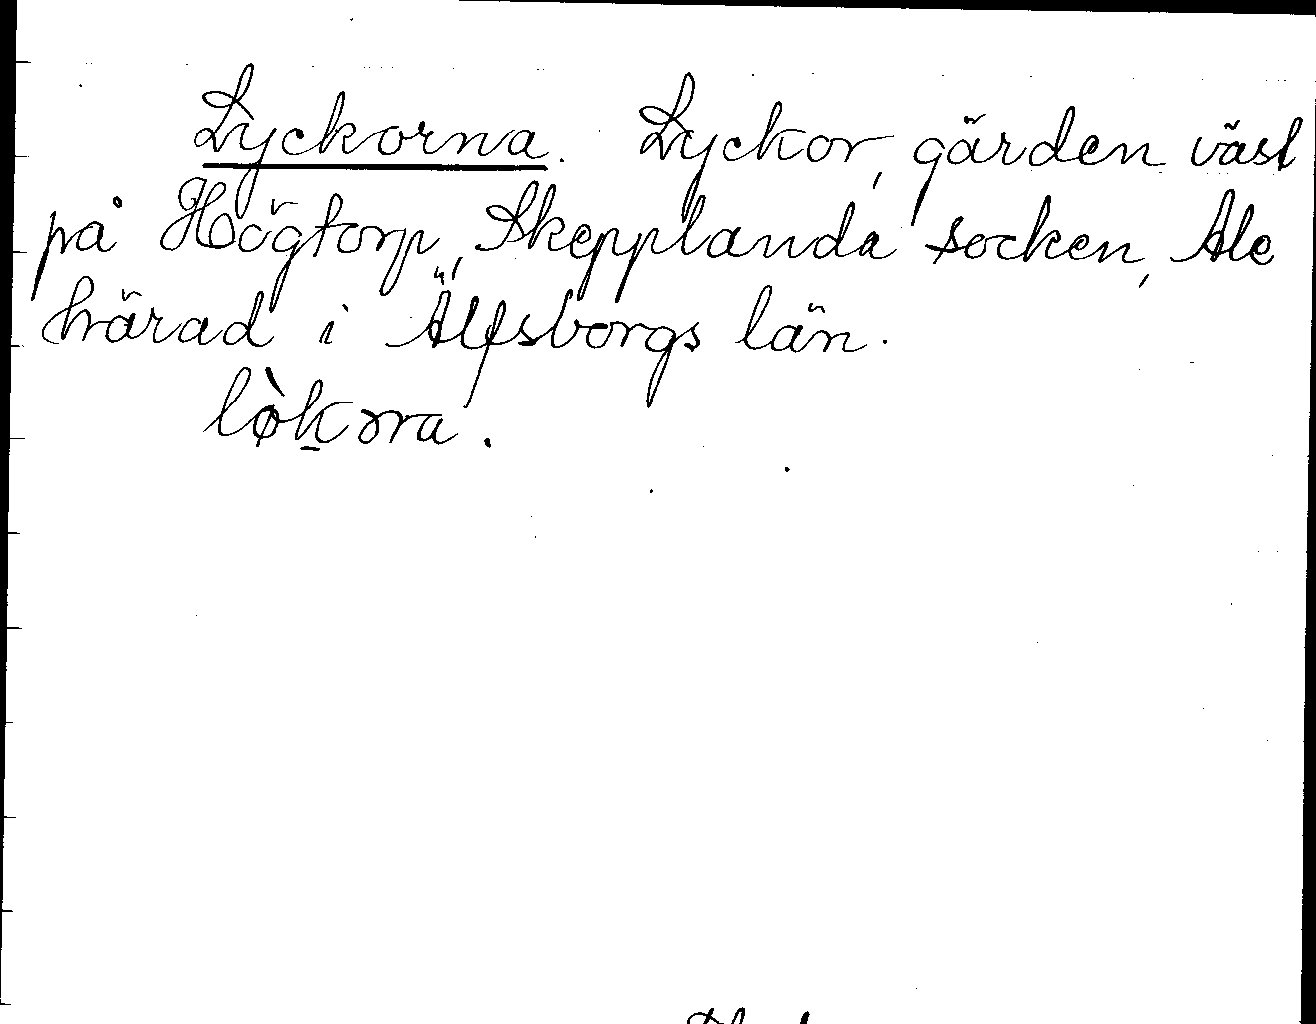 Lyckorna. Lyckor, gärden väst
på Högtorp, Skepplanda socken, Ale
härad i Älfsborgs län.
lø̀k̲ɔra.